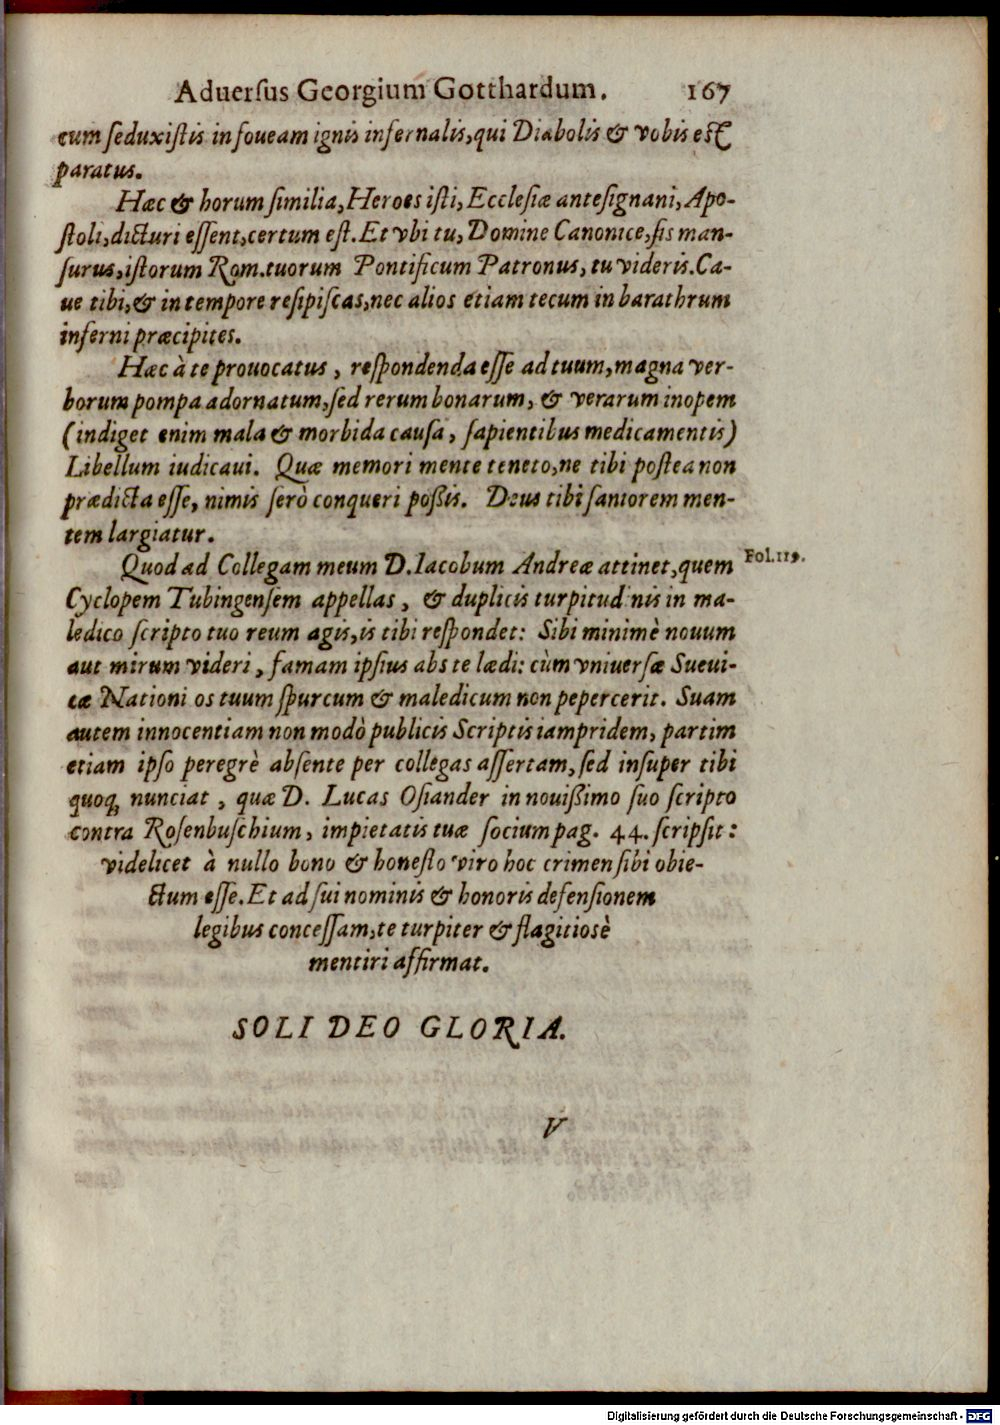 Aduerſus Georgium Gotthardum. 167
eum ſeduxiſtis in foueam ignis infernalis, qui Diabolis & vobis eſt
paratus.
Hæc & horum ſimilia, Heroes iſti, Eccleſiæ anteſignani, Apo-
ſtoli, dicturi eſſent, certum eſt. Et vbi tu, Domine Canonice, ſis man-
ſurus, iſtorum Rom. tuorum Pontificum Patronus, tu videris. Ca-
ue tibi, & in tempore reſipiſcas, nec alios etiam tecum in barathrum
inferni præcipites.
Hæc à te prouocatus, reſpondenda eſſe ad tuum, magna ver-
borum pompa adornatum, ſed rerum bonarum, & verarum inopem
(indiget enim mala & morbida cauſa, ſapientibus medicamentis)
Libellum iudicaui. Quæ memori mente teneto, ne tibi poſtea non
prædicta eſſe, nimis ſerò conqueri poßis. Deus tibi ſaniorem men-
tem largiatur.
Quod ad Collegam meum D. Iacobum Andreæ attinet, quem Fol. 119.
Cyclopem Tubingenſem appellas, & duplicis turpitud nis in ma-
ledico ſcripto tuo reum agis, is tibi reſpondet: Sibi minimè nouum
aut mirum videri, famam ipſius abs te lædi: cùm vniuerſæ Sueui-
cæ Nationi os tuum ſpurcum & maledicum non pepercerit. Suam
autem innocentiam non modò publicis Scriptis iampridem, partim
etiam ipſo peregrè abſente per collegas aſſertam, ſed inſuper tibi
quoq; nunciat, quæ D. Lucas Oſiander in nouißimo ſuo ſcripto
contra Roſenbuſchium, impietatis tuæ ſocium pag. 44. ſcripſit:
videlicet à nullo bono & honeſto viro hoc crimen ſibi obie-
ctum eſſe. Et ad ſui nominis & honoris defenſionem
legibus conceſſam, te turpiter & flagitioſè
mentiri affirmat.
SOLI DEO GLORIA.
V
Digitalisierung gefördert durch die Deutsche Forschungsgemeinschaft - DFG